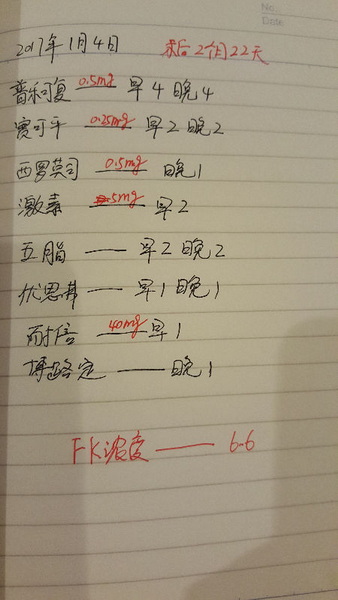 2017年1月4日 术后2个月22天
普乐可复 0.5mg 早4晚4
赛可平 0.25mg 早2晚2
西罗莫司 0.5mg 晚1
激素 5mg 早2
五脂 —— 早2晚2
优思弗 —— 早1晚1
耐信 40mg 早1
博路定 —— 晚1
FK浓度 —— 6.6
No.
Date